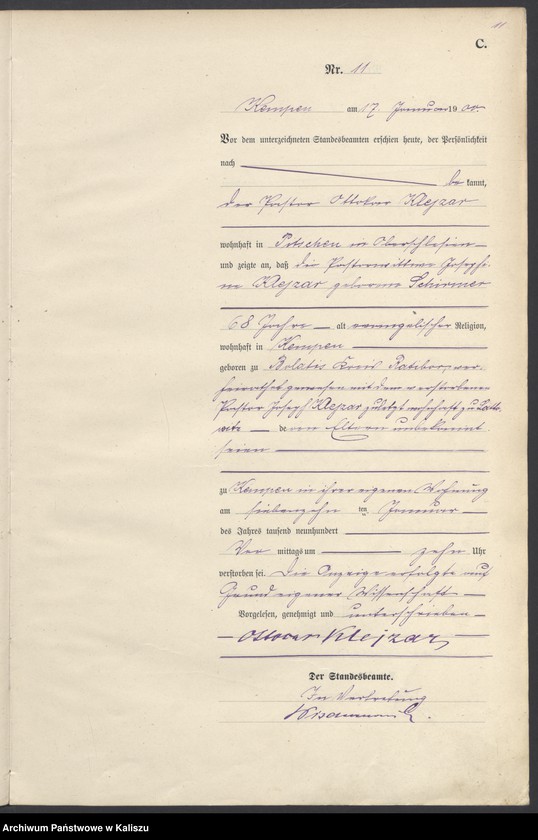 11
C.
Nr. 11
Kempen am 17. Januar 1900.
Vor dem unterzeichneten Standesbeamten erschien heute, der Persönlichkeit
nach
be kannt,
der Pastor Ottokar Klejzar
wohnhaft in Pitschen in Oberschlesien
und zeigte an, daß die Pastorwittwe Josephi-
ne Klejzar geborene Schirmer
68 Jahre alt evangelischer Religion,
wohnhaft in Kempen
geboren zu Kreis Ratibor, ver-
heirathet gewesen mit dem verstorbenen
Pastor Joseph Klejzar zuletzt wohnhaft zu
deren Eltern unbekannt
seien
zu Kempen in ihrer eigenen Wohnung
am siebenzehn ten Januar
des Jahres tausend neunhundert
Vor mittags um zehn Uhr
verstorben sei. Die Anzeige erfolgte auf
Grund eigener Wissenschaft
Vorgelesen, genehmigt und unterschrieben
Ottocar Klejzar
Der Standesbeamte.
In Vertretung
Archiwum Państwowe w Kaliszu